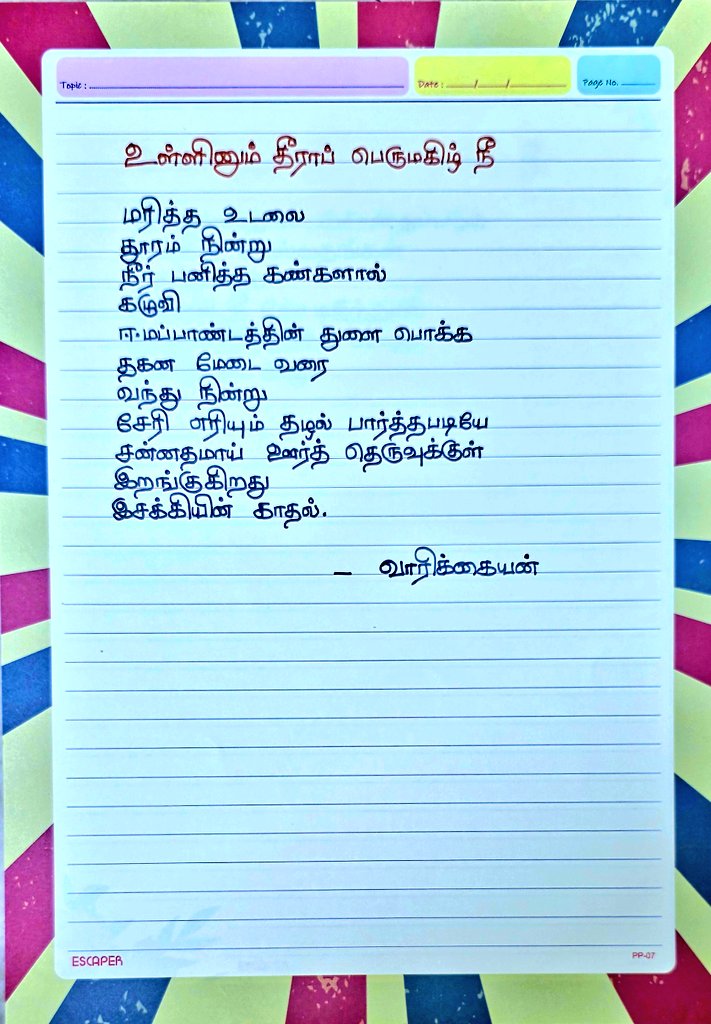 Topic : Date : / / Page No.
உள்ளினும் தீராப் பெருமகிழ் நீ
மரித்த உடலை
தூரம் நின்று
நீர் பனித்த கண்களால்
கழுவி
ஈமப்பாண்டத்தின் துளை பொக்க
தகன மேடை வரை
வந்து நின்று
சேரி எரியும் தழல் பார்த்தபடியே
சன்னதமாய் ஊர்த் தெருவுக்குள்
இறங்குகிறது
இசக்கியின் காதல்.
– வாரிக்கையன்
ESCAPER PP-07